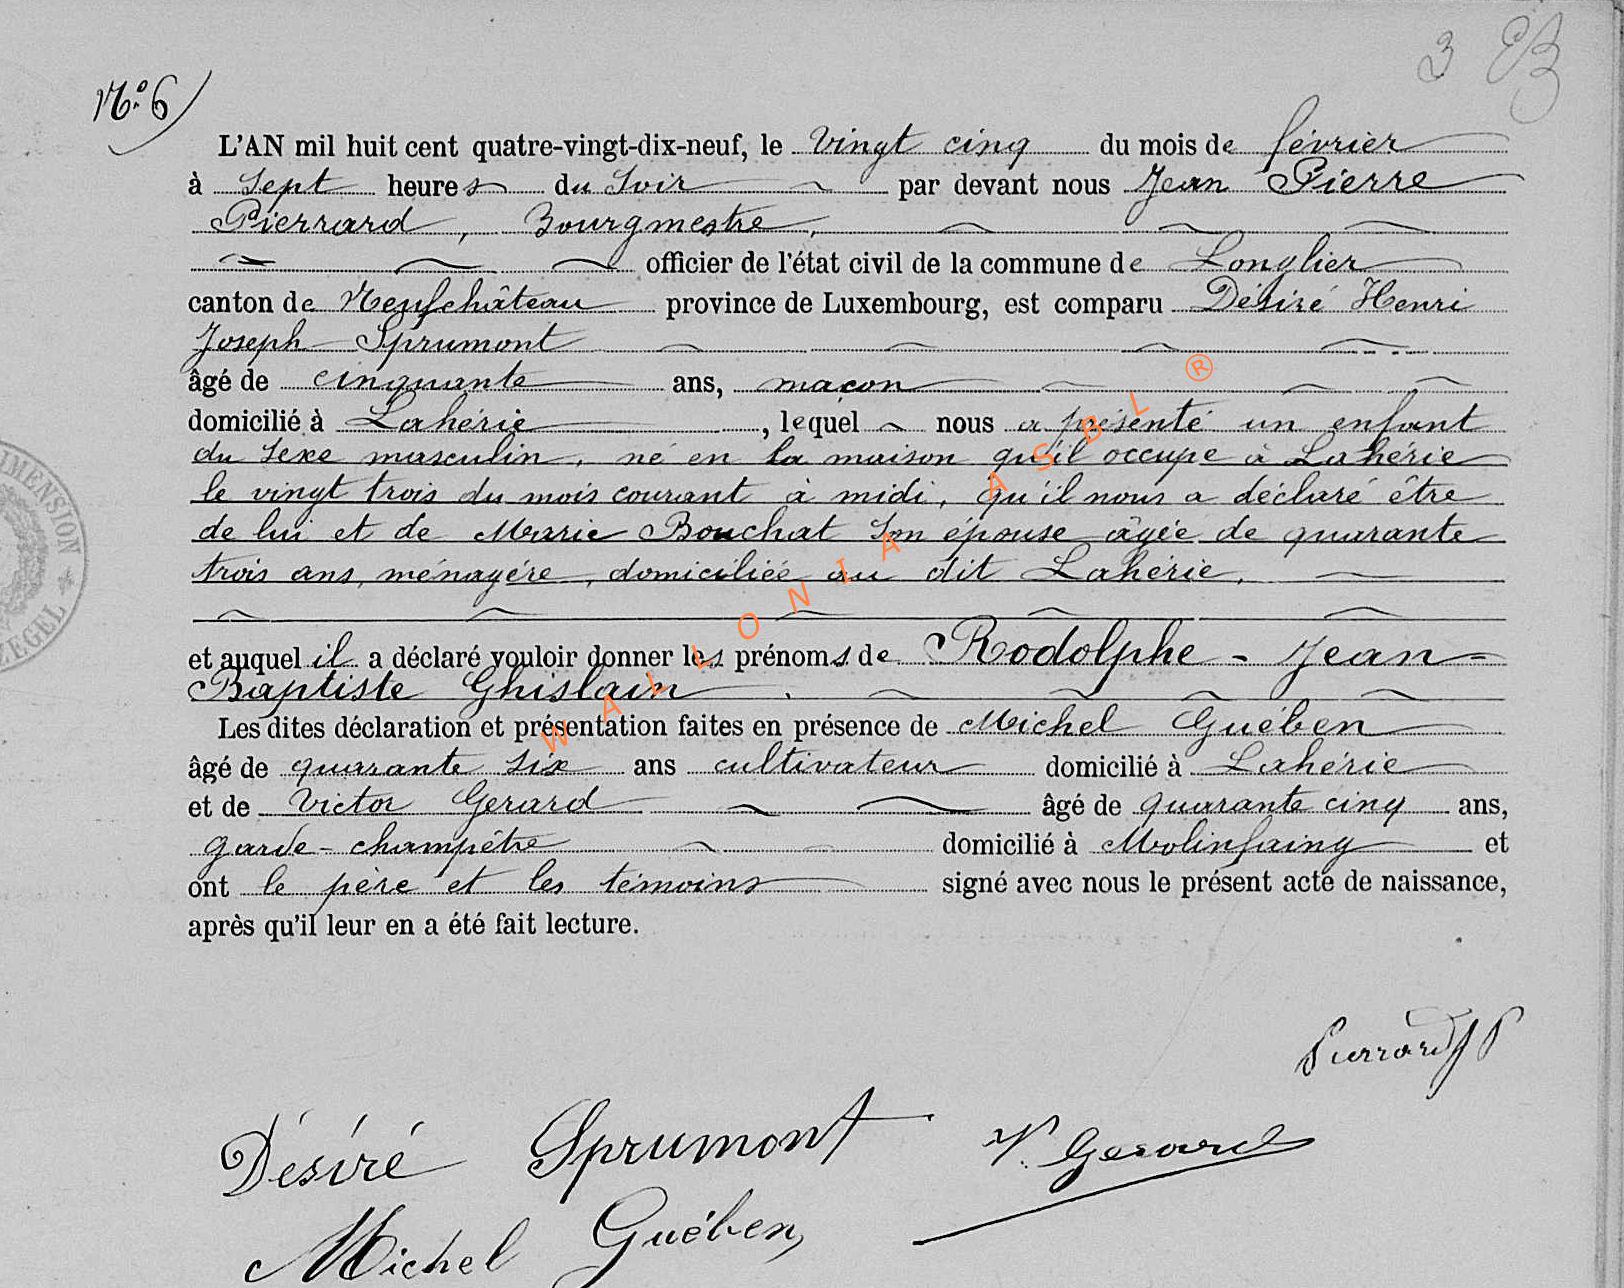 3 EB
N° 6
L'AN mil huit cent quatre-vingt-dix-neuf, le vingt cinq du mois de février
à sept heures du soir par devant nous Jean Pierre
Pierrard, Bourgmestre,
officier de l'état civil de la commune de Longlier
canton de Neufchâteau province de Luxembourg, est comparu Désiré Henri
Joseph Sprumont
âgé de cinquante ans, maçon
domicilié à Lahérie, lequel nous a présenté un enfant
du sexe masculin, né en la maison qu'il occupe à Lahérie
le vingt trois du mois courant à midi, qu'il nous a déclaré être
de lui et de Marie Bouchat son épouse âgée de quarante
trois ans, ménagère, domiciliée au dit Lahérie,
et auquel il a déclaré vouloir donner les prénoms de Rodolphe - Jean-
Baptiste Ghislain.
Les dites déclaration et présentation faites en présence de Michel Guében
âgé de quarante six ans cultivateur domicilié à Lahérie
et de Victor Gerard âgé de quarante cinq ans,
garde-champêtre domicilié à Molinfaing et
ont le père et les témoins signé avec nous le présent acte de naissance,
après qu'il leur en a été fait lecture.
Pierrard JP
Désiré Sprumont V. Gerard
Michel Guében,
WALLONIA ASBL ®
IMENSION
ZEGEL